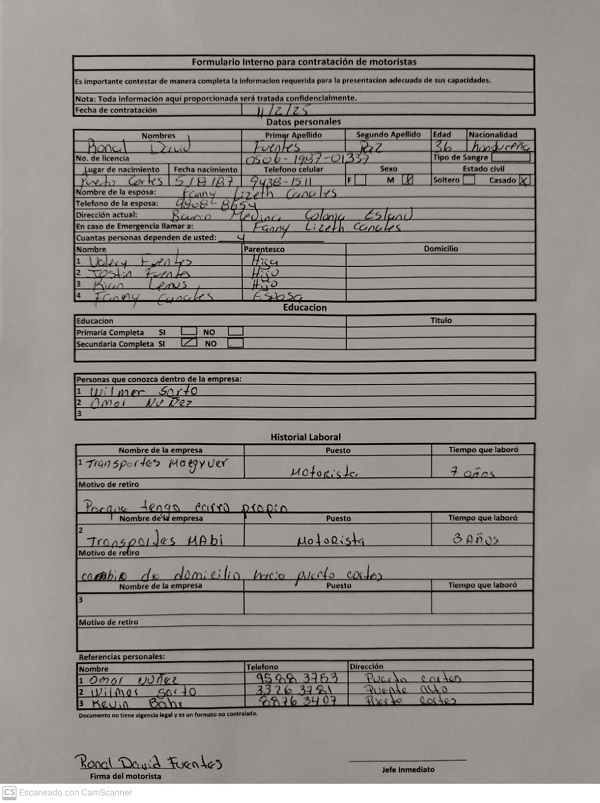 Formulario Interno para contratación de motoristas
Es importante contestar de manera completa la informacion requerida para la presentacion adecuada de sus capacidades.
Nota: Toda información aqui proporcionada será tratada confidencialmente.
Fecha de contratación 11/2/25
Datos personales
Nombres Primer Apellido Segundo Apellido Edad Nacionalidad
Ronal David Fuentes 36 Hondureña
No. de licencia 0506-1987-01337 Tipo de Sangre
Lugar de nacimiento Fecha nacimiento Telefono celular Sexo Estado civil
Puerto Cortes 5/8/87 9438-1511 F M Soltero Casado X
Nombre de la esposa: Fanny Lizeth Canales
Telefono de la esposa: 9908-8654
Dirección actual: Barrio Medina Colonia
En caso de Emergencia llamar a: Fanny Lizeth Canales
Cuantas personas dependen de usted: 4
Nombre Parentesco Domicilio
1 Valery Fuentes Hija
2 Jostin Fuentes Hijo
3 Kian Lemus Hijo
4 Fanny Canales Esposa
Educacion
Educacion Titulo
Primaria Completa SI NO
Secundaria Completa SI NO
Personas que conozca dentro de la empresa:
1 Wilmer Sorto
2 Omar Nuñez
3
Historial Laboral
Nombre de la empresa Puesto Tiempo que laboró
1 Transportes Motorista 7 años
Motivo de retiro
Porque tengo carro propio
Nombre de la empresa Puesto Tiempo que laboró
2 Transportes MAbi Motorista 3 Años
Motivo de retiro
cambio de domicilio hacia puerto cortes
Nombre de la empresa Puesto Tiempo que laboró
3
Motivo de retiro
Referencias personales:
Nombre Telefono Dirección
1 Omar Nuñez 9588 3753 Puerto cortes
2 Wilmer Sorto 3326 3781 Puente alto
3 Kevin Bahr 8876 3407 Puerto cortes
Documento no tiene vigencia legal y es un formato no contralado.
Ronal David Fuentes
Firma del motorista Jefe Inmediato
CS Escaneado con CamScanner